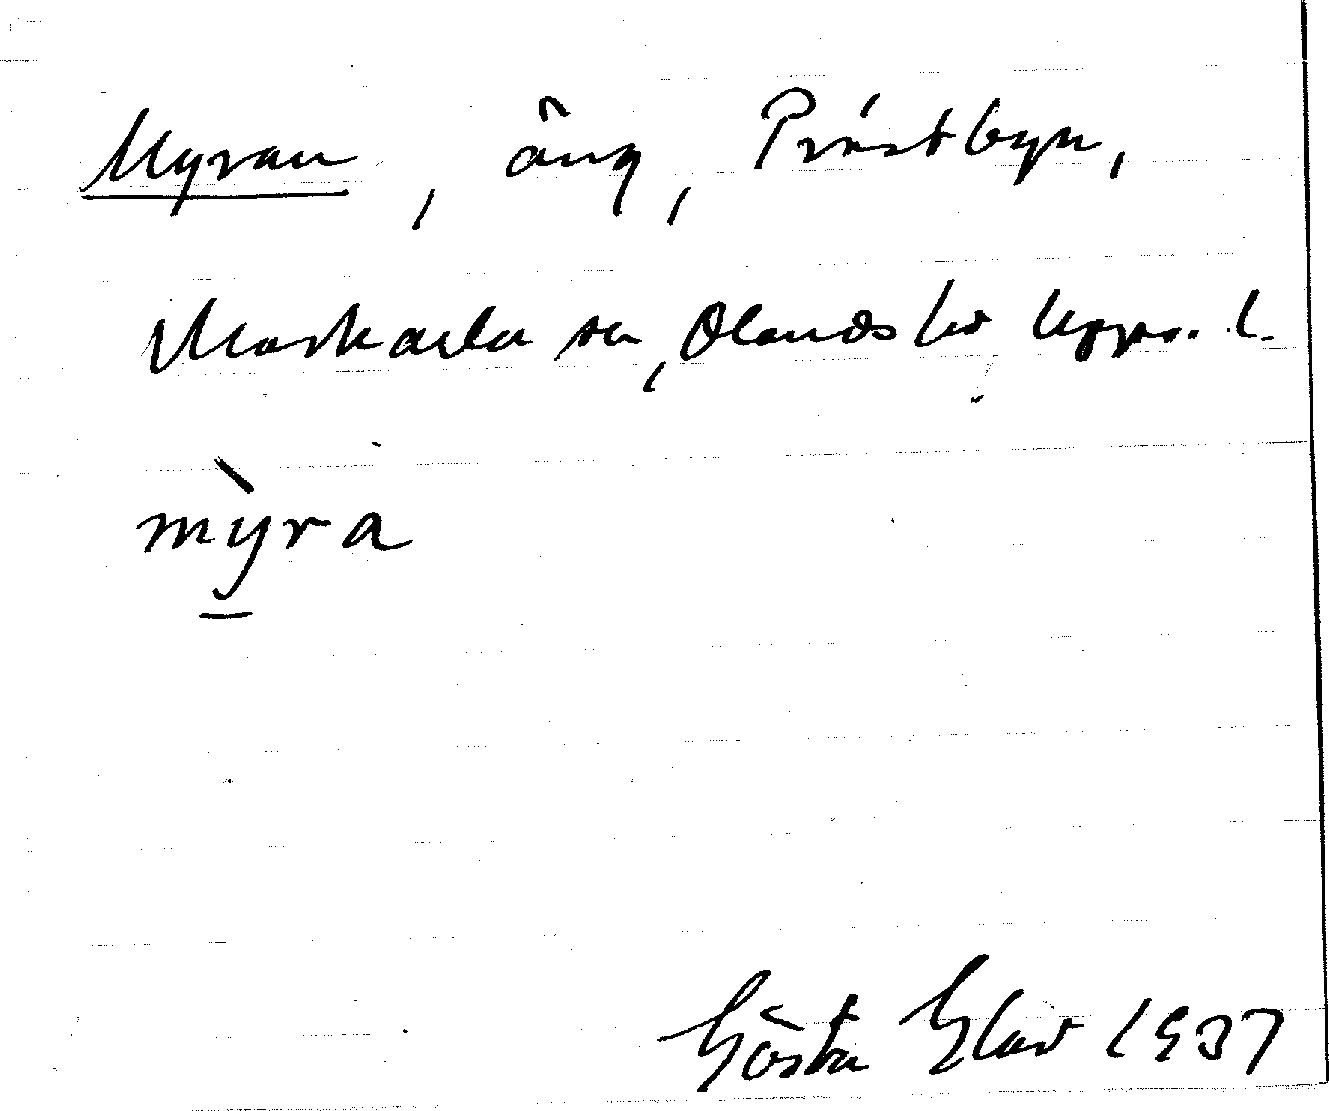 Myran, äng, Prästbyn,
Morkarla sn, Olands hd Upps. l.
mỳra
Gösta Glad 1937